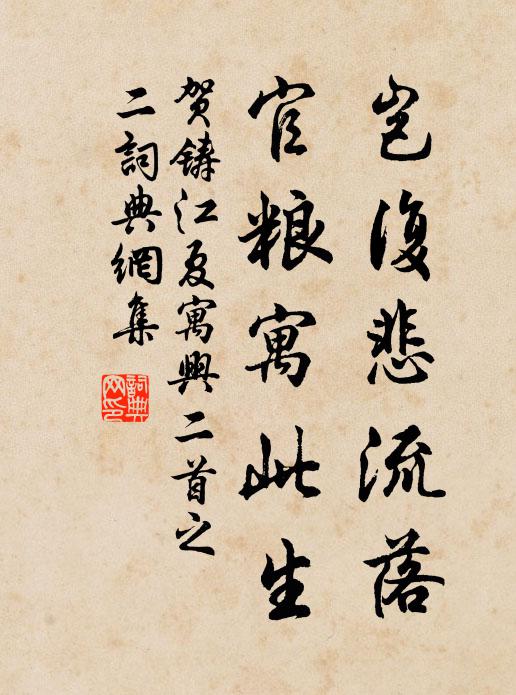 岂復悲流落
官粮寓此生
贺铸江夏寓興二首之
二詞典網集
詞典网印